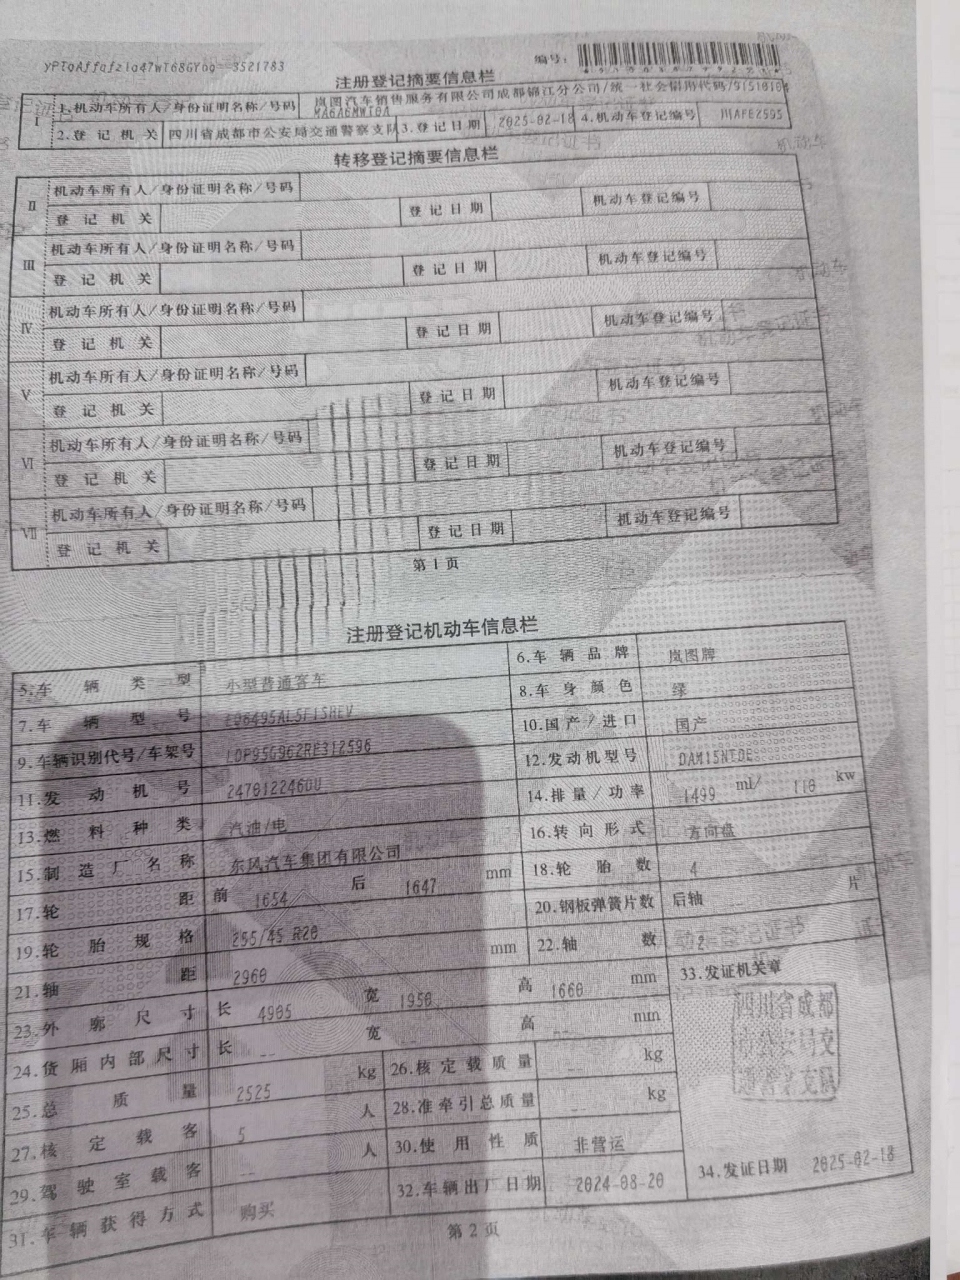 编号：
注册登记摘要信息栏
I 1.机动车所有人/身份证明名称/号码 岚图汽车销售服务有限公司成都锦江分公司/统一社会信用代码/91510104
MA6A6MWT0A
2.登记机关 四川省成都市公安局交通警察支队 3.登记日期 2025-02-18 4.机动车登记编号
转移登记摘要信息栏
II 机动车所有人/身份证明名称/号码
登记机关 登记日期 机动车登记编号
III 机动车所有人/身份证明名称/号码
登记机关 登记日期 机动车登记编号
IV 机动车所有人/身份证明名称/号码
登记机关 登记日期 机动车登记编号
V 机动车所有人/身份证明名称/号码
登记机关 登记日期 机动车登记编号
VI 机动车所有人/身份证明名称/号码
登记机关 登记日期 机动车登记编号
VII 机动车所有人/身份证明名称/号码
登记机关 登记日期 机动车登记编号
第1页
注册登记机动车信息栏
5.车辆类型 小型普通客车 6.车辆品牌 岚图牌
7.车辆型号 8.车身颜色 绿
9.车辆识别代号/车架号 10.国产/进口 国产
11.发动机号 12.发动机型号 DAM15NTDE
13.燃料种类 汽油/电 14.排量/功率 1499 ml/ 110 kw
15.制造厂名称 东风汽车集团有限公司 16.转向形式 方向盘
17.轮距 前 1654 后 1647 mm 18.轮胎数 4
19.轮胎规格 255/45 R20 20.钢板弹簧片数 后轴 片
21.轴距 2960 mm 22.轴数 2
23.外廓尺寸 长 4905 宽 1950 高 1660 mm 33.发证机关章
24.货厢内部尺寸 长 -- 宽 -- 高 -- mm
四川省成都
市公安局交
通警察支队
25.总质量 2525 kg 26.核定载质量 -- kg
27.核定载客 5 人 28.准牵引总质量 -- kg
29.驾驶室载客 -- 人 30.使用性质 非营运
31.车辆获得方式 购买 32.车辆出厂日期 2024-08-20 34.发证日期 2025-02-18
第2页